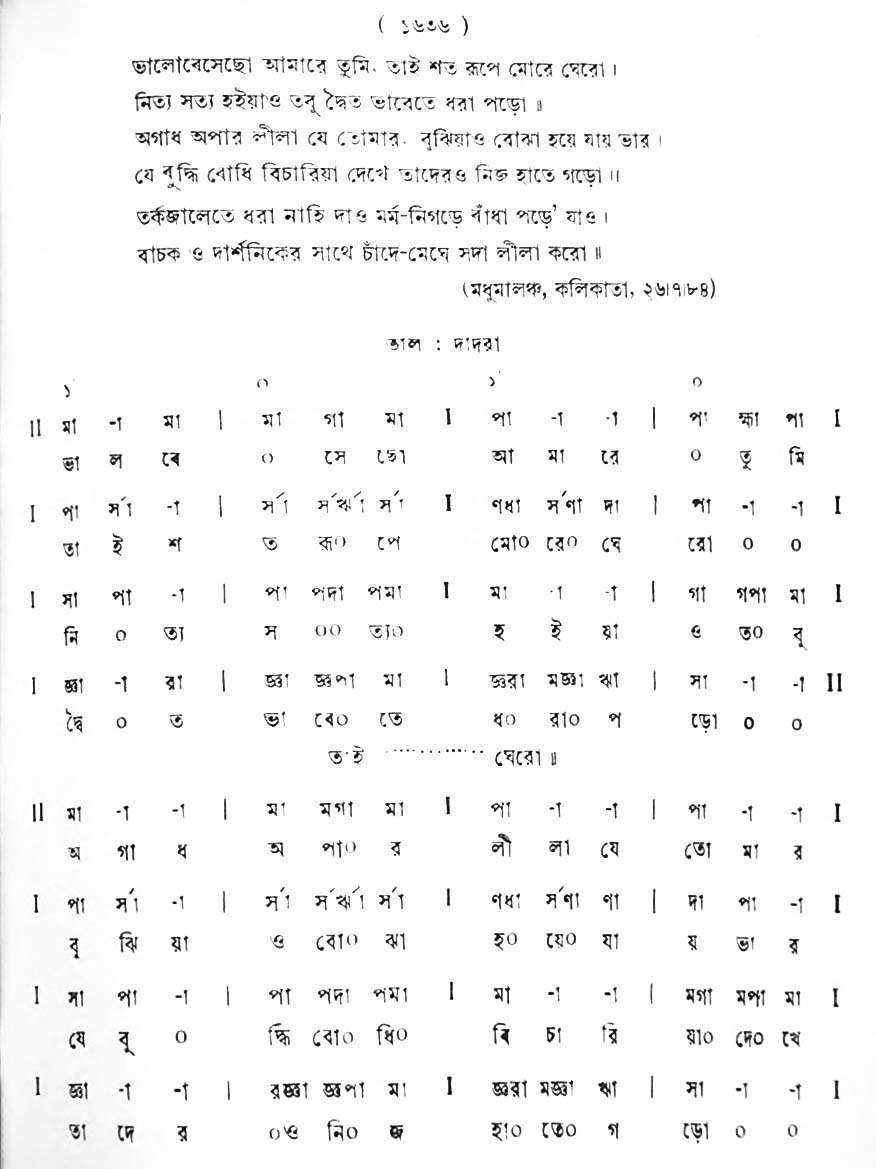 ( ১৬৩৬ )
ভালোবেসেছো আমারে তুমি, তাই শত রূপে মোরে ঘেরো।
নিত্য সত্য হইয়াও তবু দ্বৈত ভাবেতে ধরা পড়ো॥
অগাধ অপার লীলা যে তোমার, বুঝিয়াও বোঝা হয়ে যায় ভার।
যে বুদ্ধি বোধি বিচারিয়া দেখে তাদেরও নিজ হাতে গড়ো॥
তর্কজালেতে ধরা নাহি দাও মর্ম-নিগড়ে বাঁধা পড়ে’ যাও।
বাচক ও দার্শনিকের সাথে চাঁদে-মেঘে সদা লীলা করো॥
(মধুমালঞ্চ, কলিকাতা, ২৬।৭।৮৪)
তাল : দাদরা
১ ০ ১ ০
II মা -া মা | মা গা মা I পা -া -া | পা হ্মা পা I
ভা ল বে ০ সে ছো আ মা রে ০ তু মি
I পা র্সা -া | র্সা র্সর্ঋা র্সা I ণধা র্সণা দা | পা -া -া I
তা ই শ ত রূ০ পে মো০ রে০ ঘে রো ০ ০
I সা পা -া | পা পদা পমা I মা -া -া | গা গপা মা I
নি ০ ত্য স ০০ ত্য০ হ ই য়া ও ত০ বু
I জ্ঞা -া রা | জ্ঞা জ্ঞপা মা I জ্ঞরা মজ্ঞা ঋা | সা -া -া II
দ্বৈ ০ ত ভা বে০ তে ধ০ রা০ প ড়ো ০ ০
তাই ·············· ঘেরো॥
II মা -া -া | মা মগা মা I পা -া -া | পা -া -া I
অ গা ধ অ পা০ র লী লা যে তো মা র
I পা র্সা -া | র্সা র্সর্ঋা র্সা I ণধা র্সণা ণা | দা পা -া I
বু ঝি য়া ও বো০ ঝা হ০ য়ে০ যা য় ভা র
I সা পা -া | পা পদা পমা I মা -া -া | মগা মপা মা I
যে বু ০ দ্ধি বো০ ধি০ বি চা রি য়া০ দে০ খে
I জ্ঞা -া -া | রজ্ঞা জ্ঞপা মা I জ্ঞরা মজ্ঞা ঋা | সা -া -া I
তা দে র ০ও নি০ জ হা০ তে০ গ ড়ো ০ ০